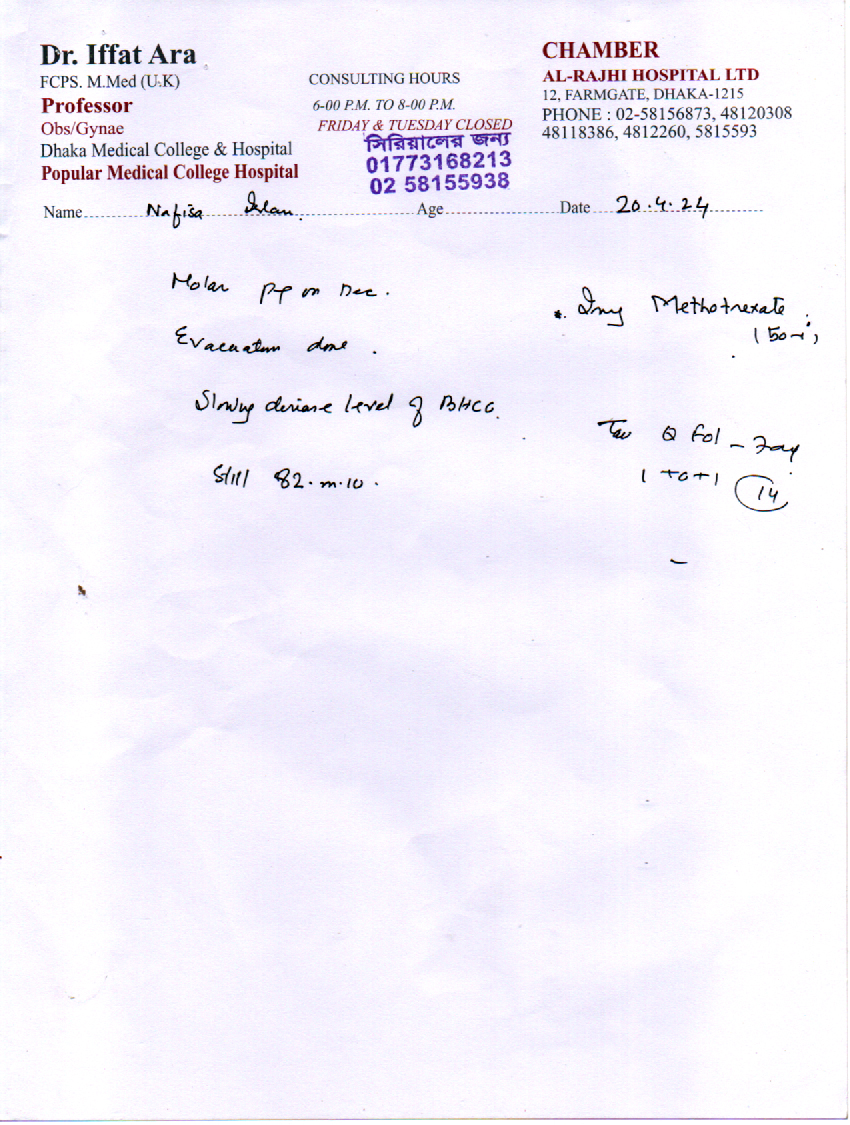 Dr. Iffat Ara
FCPS. M.Med (U.K)
Professor
Obs/Gynae
Dhaka Medical College & Hospital
Popular Medical College Hospital
CONSULTING HOURS
6-00 P.M. TO 8-00 P.M.
FRIDAY & TUESDAY CLOSED
সিরিয়ালের জন্য
01773168213
02 58155938
CHAMBER
AL-RAJHI HOSPITAL LTD
12, FARMGATE, DHAKA-1215
PHONE : 02-58156873, 48120308
48118386, 4812260, 5815593
Name Nafisa Age Date 20.4.24
Molar on Dec.
Evacuation done.
Slowing level of BHCG.
Still 82.
Methotrexate
Fol
1+0+1 14